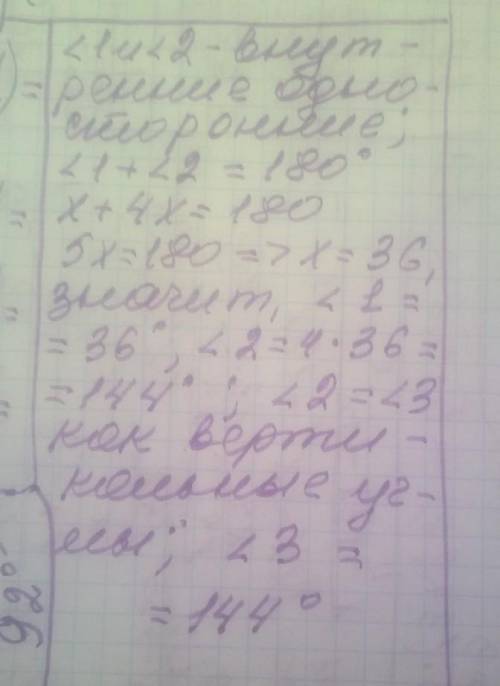 ∠1 и ∠2 - внут-
ренние одно-
сторонние;
∠1 + ∠2 = 180°
x + 4x = 180
5x = 180 => x = 36,
значит, ∠1 =
= 36°, ∠2 = 4·36 =
= 144°; ∠2 = ∠3
как верти-
кальные уг-
лы; ∠3 =
= 144°
92°